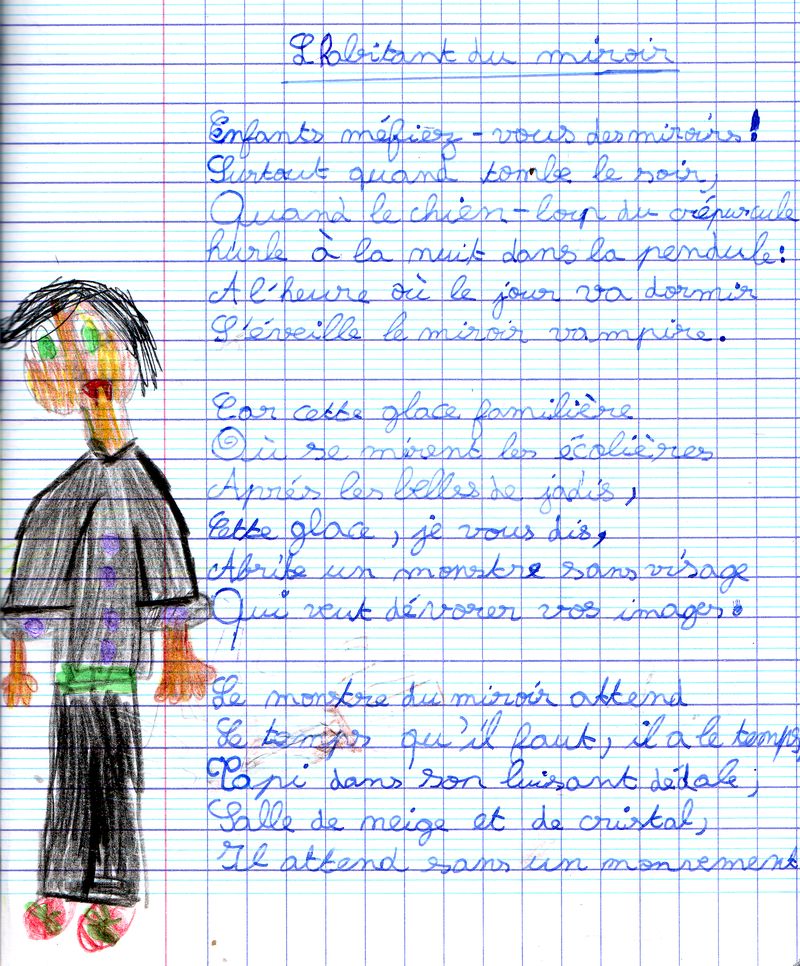 L'habitant du miroir
Enfants méfiez-vous des miroirs!
Surtout quand tombe le soir,
Quand le chien-loup du crépuscule
hurle à la nuit dans la pendule:
A l'heure où le jour va dormir
S'éveille le miroir vampire.
Car cette glace familière
Où se mirent les écolières
Aprés les belles de jadis,
Cette glace, je vous dis,
Abrite un monstre sans visage
Qui veut dévorer vos images.
Le monstre du miroir attend
Le temps qu'il faut, il a le temps,
Tapi dans son luisant dédale,
Salle de neige et de cristal,
Il attend sans un mouvement